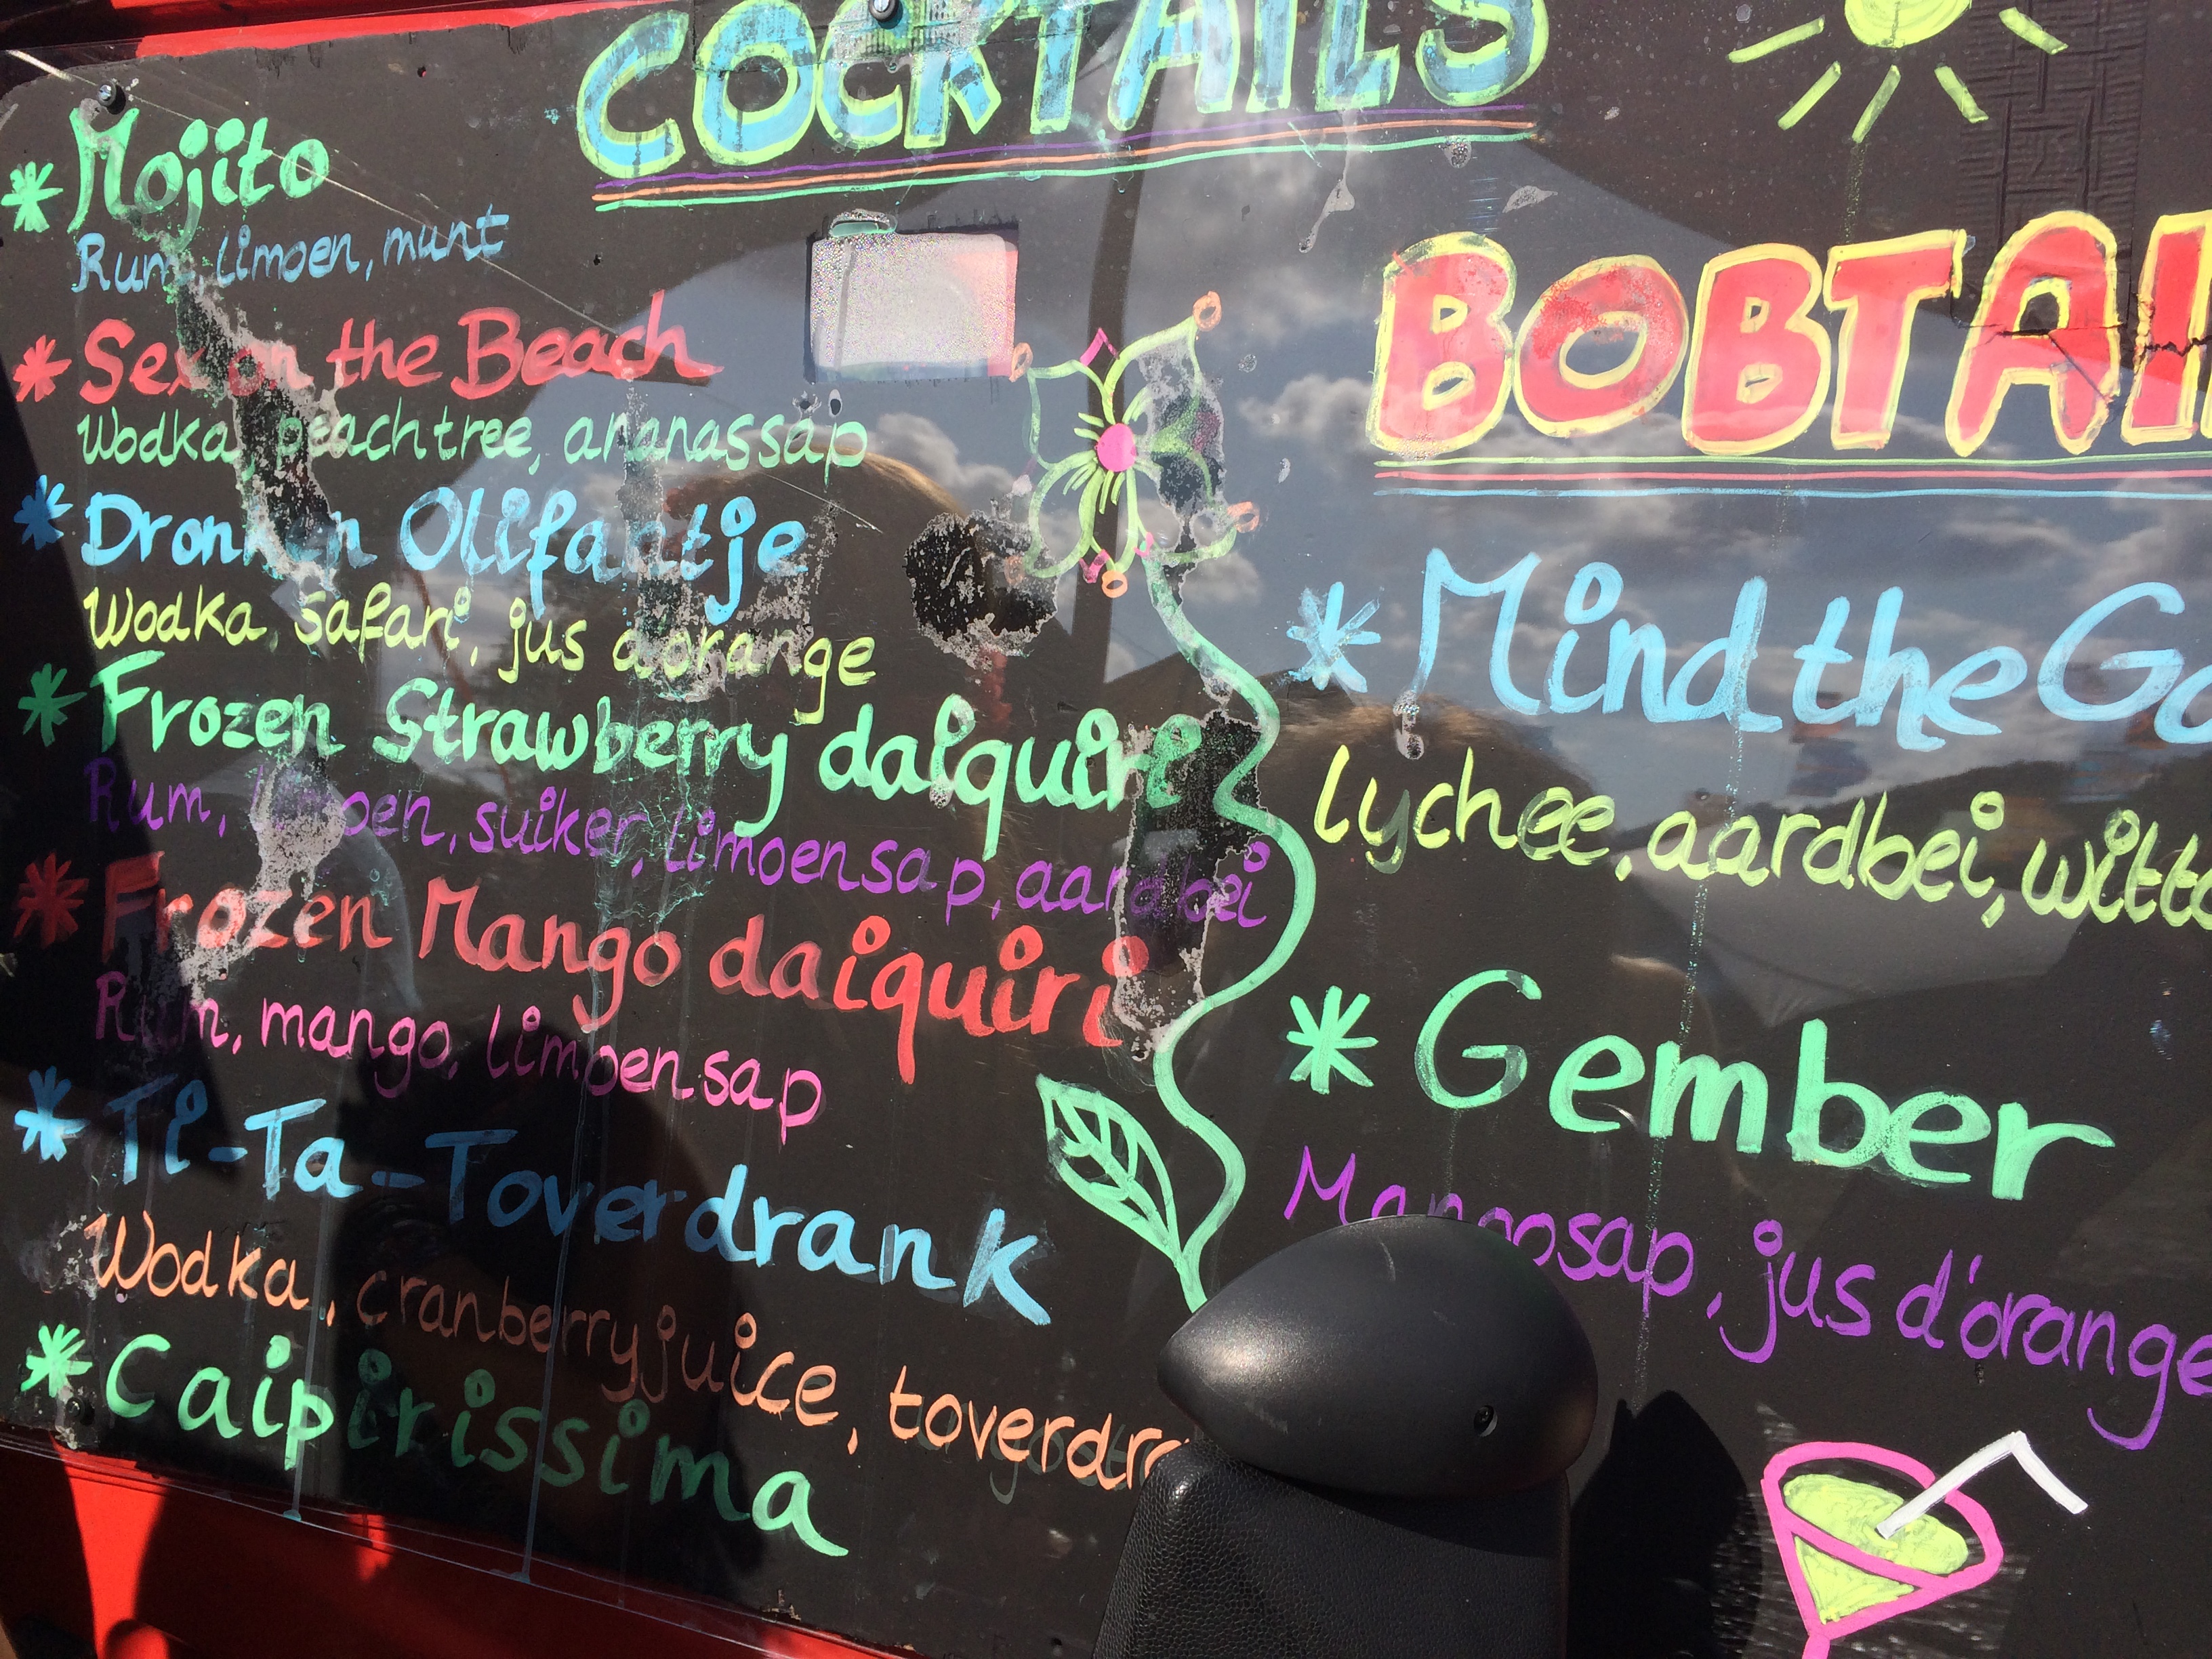 COCKTAILS
* Mojito
Rum, limoen, munt
* Sex on the Beach
Wodka, peachtree, ananassap
* Dronken Olifaatje
Wodka, safari, jus d'orange
* Frozen Strawberry daiquiri
Rum, limoen, suiker, limoensap, aardbei
* Frozen Mango daiquiri
Rum, mango, limoensap
* Ti-Ta-Toverdrank
Wodka, cranberryjuice, toverdra
* Caipirissima
BOBTAI
* Mind the Ga
lychee, aardbei, witte
* Gember
Mangosap, jus d'orange